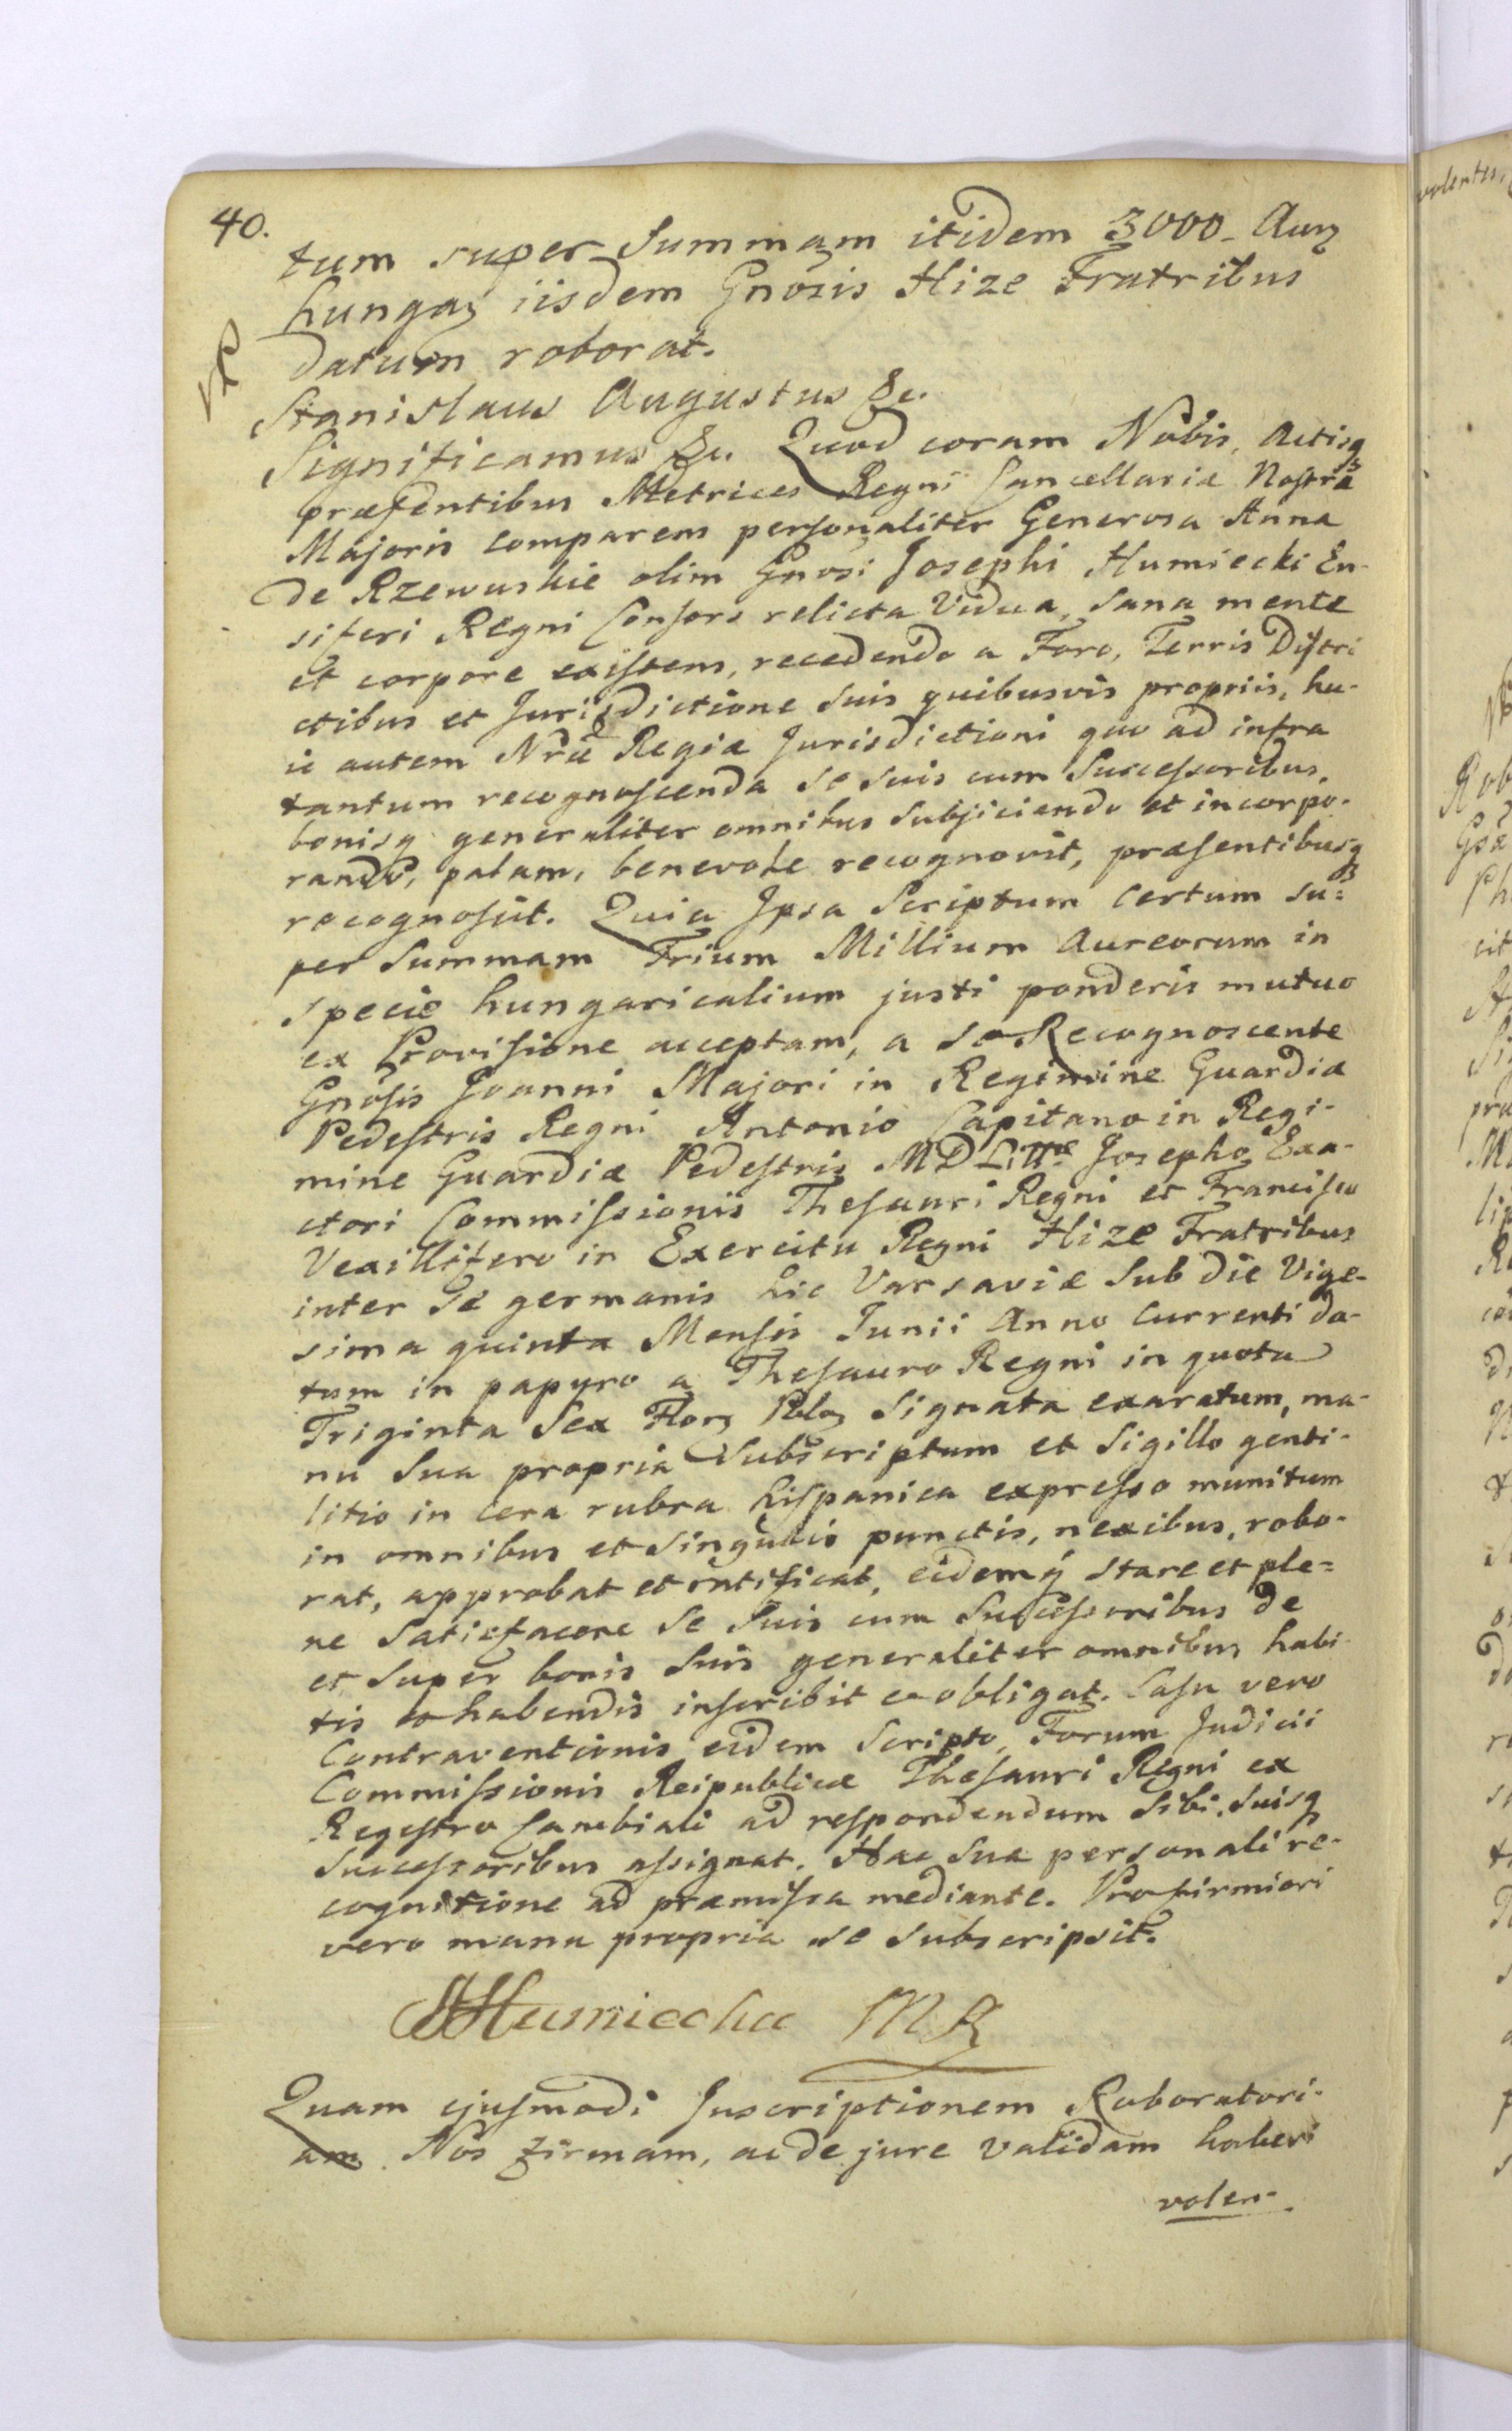 40.
tum super Summam itidem 3000 Aurꝫ
hungaꝫ iisdem Gnosis Hize Fratribus
datum roborat.
Stanislaus Augustus &c.
Significamus &c. Quod coram Nobis, Actisqꝫ
præsentibus Metrices Regni Cancellariæ Nostræ
Majoris comparens personaliter Generosa Anna
de Rzewuskie olim Gnosi Josephi Humiecki En-
siferi Regni Consors relicta Vidua, sana mente
et corpore existens, recedendo a Foro, Terris Distri
ctibus et Jurisdictione suis quibusvis propriis, hu-
ic autem Nræ Regiæ Jurisdictioni quo ad infra
tantum recognoscenda se suis cum Successoribus,
bonisq generaliter omnibus subjiciendo et incorpo-
rando, palam, benevole recognovit, præsentibusqꝫ
recognoscit. Quia Ipsa Scriptum certum su=
per Summam Trium Millium Aureorum in
specie hungaricalium justi ponderis mutuo
ex Provisione acceptam, a se Recognoscente
Gnosis Joanni Majori in Regimine Guardiæ
Pedestris Regni Antonio Capitano in Regi-
mine Guardiæ Pedestris MD Littæ Josepho Exa-
ctori Commissionis Thesauri Regni et Francisco
Vexillifero in Exercitu Regni Hize Fratribus
inter se germanis hic Varsaviæ sub die Vige-
sima quinta Mensis Junii Anno Currenti da-
tum in papyro a Thesauro Regni in quota
Triginta Sex Florꝫ Polꝫ Signata exaratum, ma-
nu sua propria Subscriptum et Sigillo genti-
litio in cera rubra hispanica expresso munitum
in omnibus et singulis punctis, nexibus, robo-
rat, approbat et ratificat, eidemq stare et ple=
ne satisfacere se suis cum Successoribus de
et super bonis suis generaliter omnibus habi-
tis et habendis inscribit et obligat. Casu vero
Contraventionis eidem Scripto, Forum Judicii
Commissionis Reipublicæ Thesauri Regni ex
Regestro Cambiali ad respondendum sibi, suisq
Successoribus assignat. Hac sua personali re-
cognitione ad præmissa mediante. Pro firmiori
vero manu propria se subscripsit.
AHumiecka MP
Quam ejusmodi Inscriptionem Roboratori-
am Nos firmam, ac de jure validam haberi
volen-